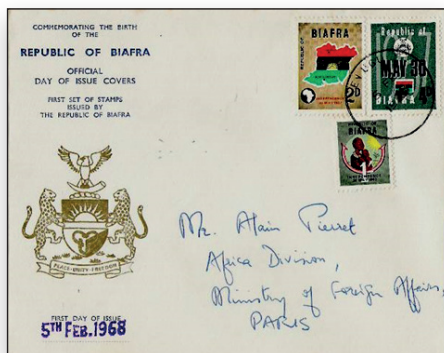 COMMEMORATING THE BIRTH
OF THE
REPUBLIC OF BIAFRA
OFFICIAL
DAY OF ISSUE COVERS
FIRST SET OF STAMPS
ISSUED BY
THE REPUBLIC OF BIAFRA
PEACE·UNITY·FREEDOM
FIRST DAY OF ISSUE
5TH FEB. 1968
REPUBLIC OF
BIAFRA
2D
Republic of
MAY 30
BIAFRA
4D
BIAFRA
INDEPENDENCE
Mr. Alain Pierret
Africa Division,
Ministry of Foreign Affairs,
PARIS